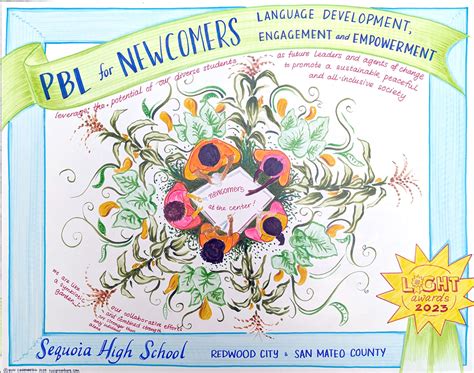 PBL for NEWCOMERS
LANGUAGE DEVELOPMENT,
ENGAGEMENT and EMPOWERMENT
leverage the potential of our diverse students
as future leaders and agents of change
to promote a sustainable peaceful
and all-inclusive society
newcomers
at the center!
we are like
a
garden
our collaborative efforts
and combined strength
are stronger than
any individual
alone
LIGHT
awards
2023
Sequoia High School
REDWOOD CITY & SAN MATEO COUNTY